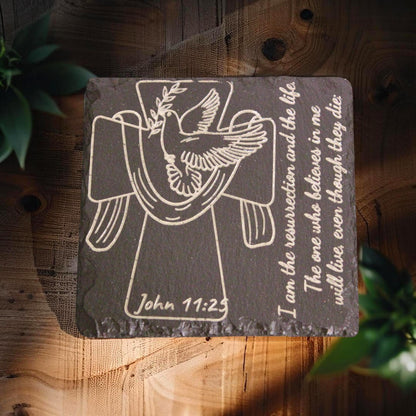 John 11:25
I am the resurrection and the life.
The one who believes in me
will live, even though they die: